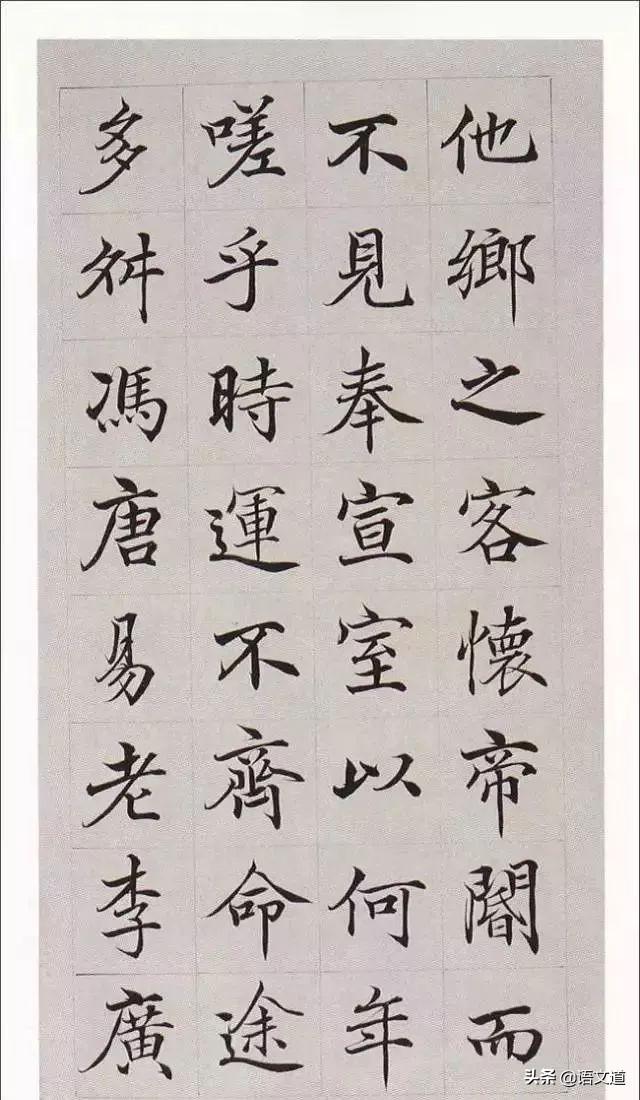 他鄉之客懷帝閽而
不見奉宣室以何年
嗟乎時運不齊命途
多舛馮唐易老李廣
头条 @语文道